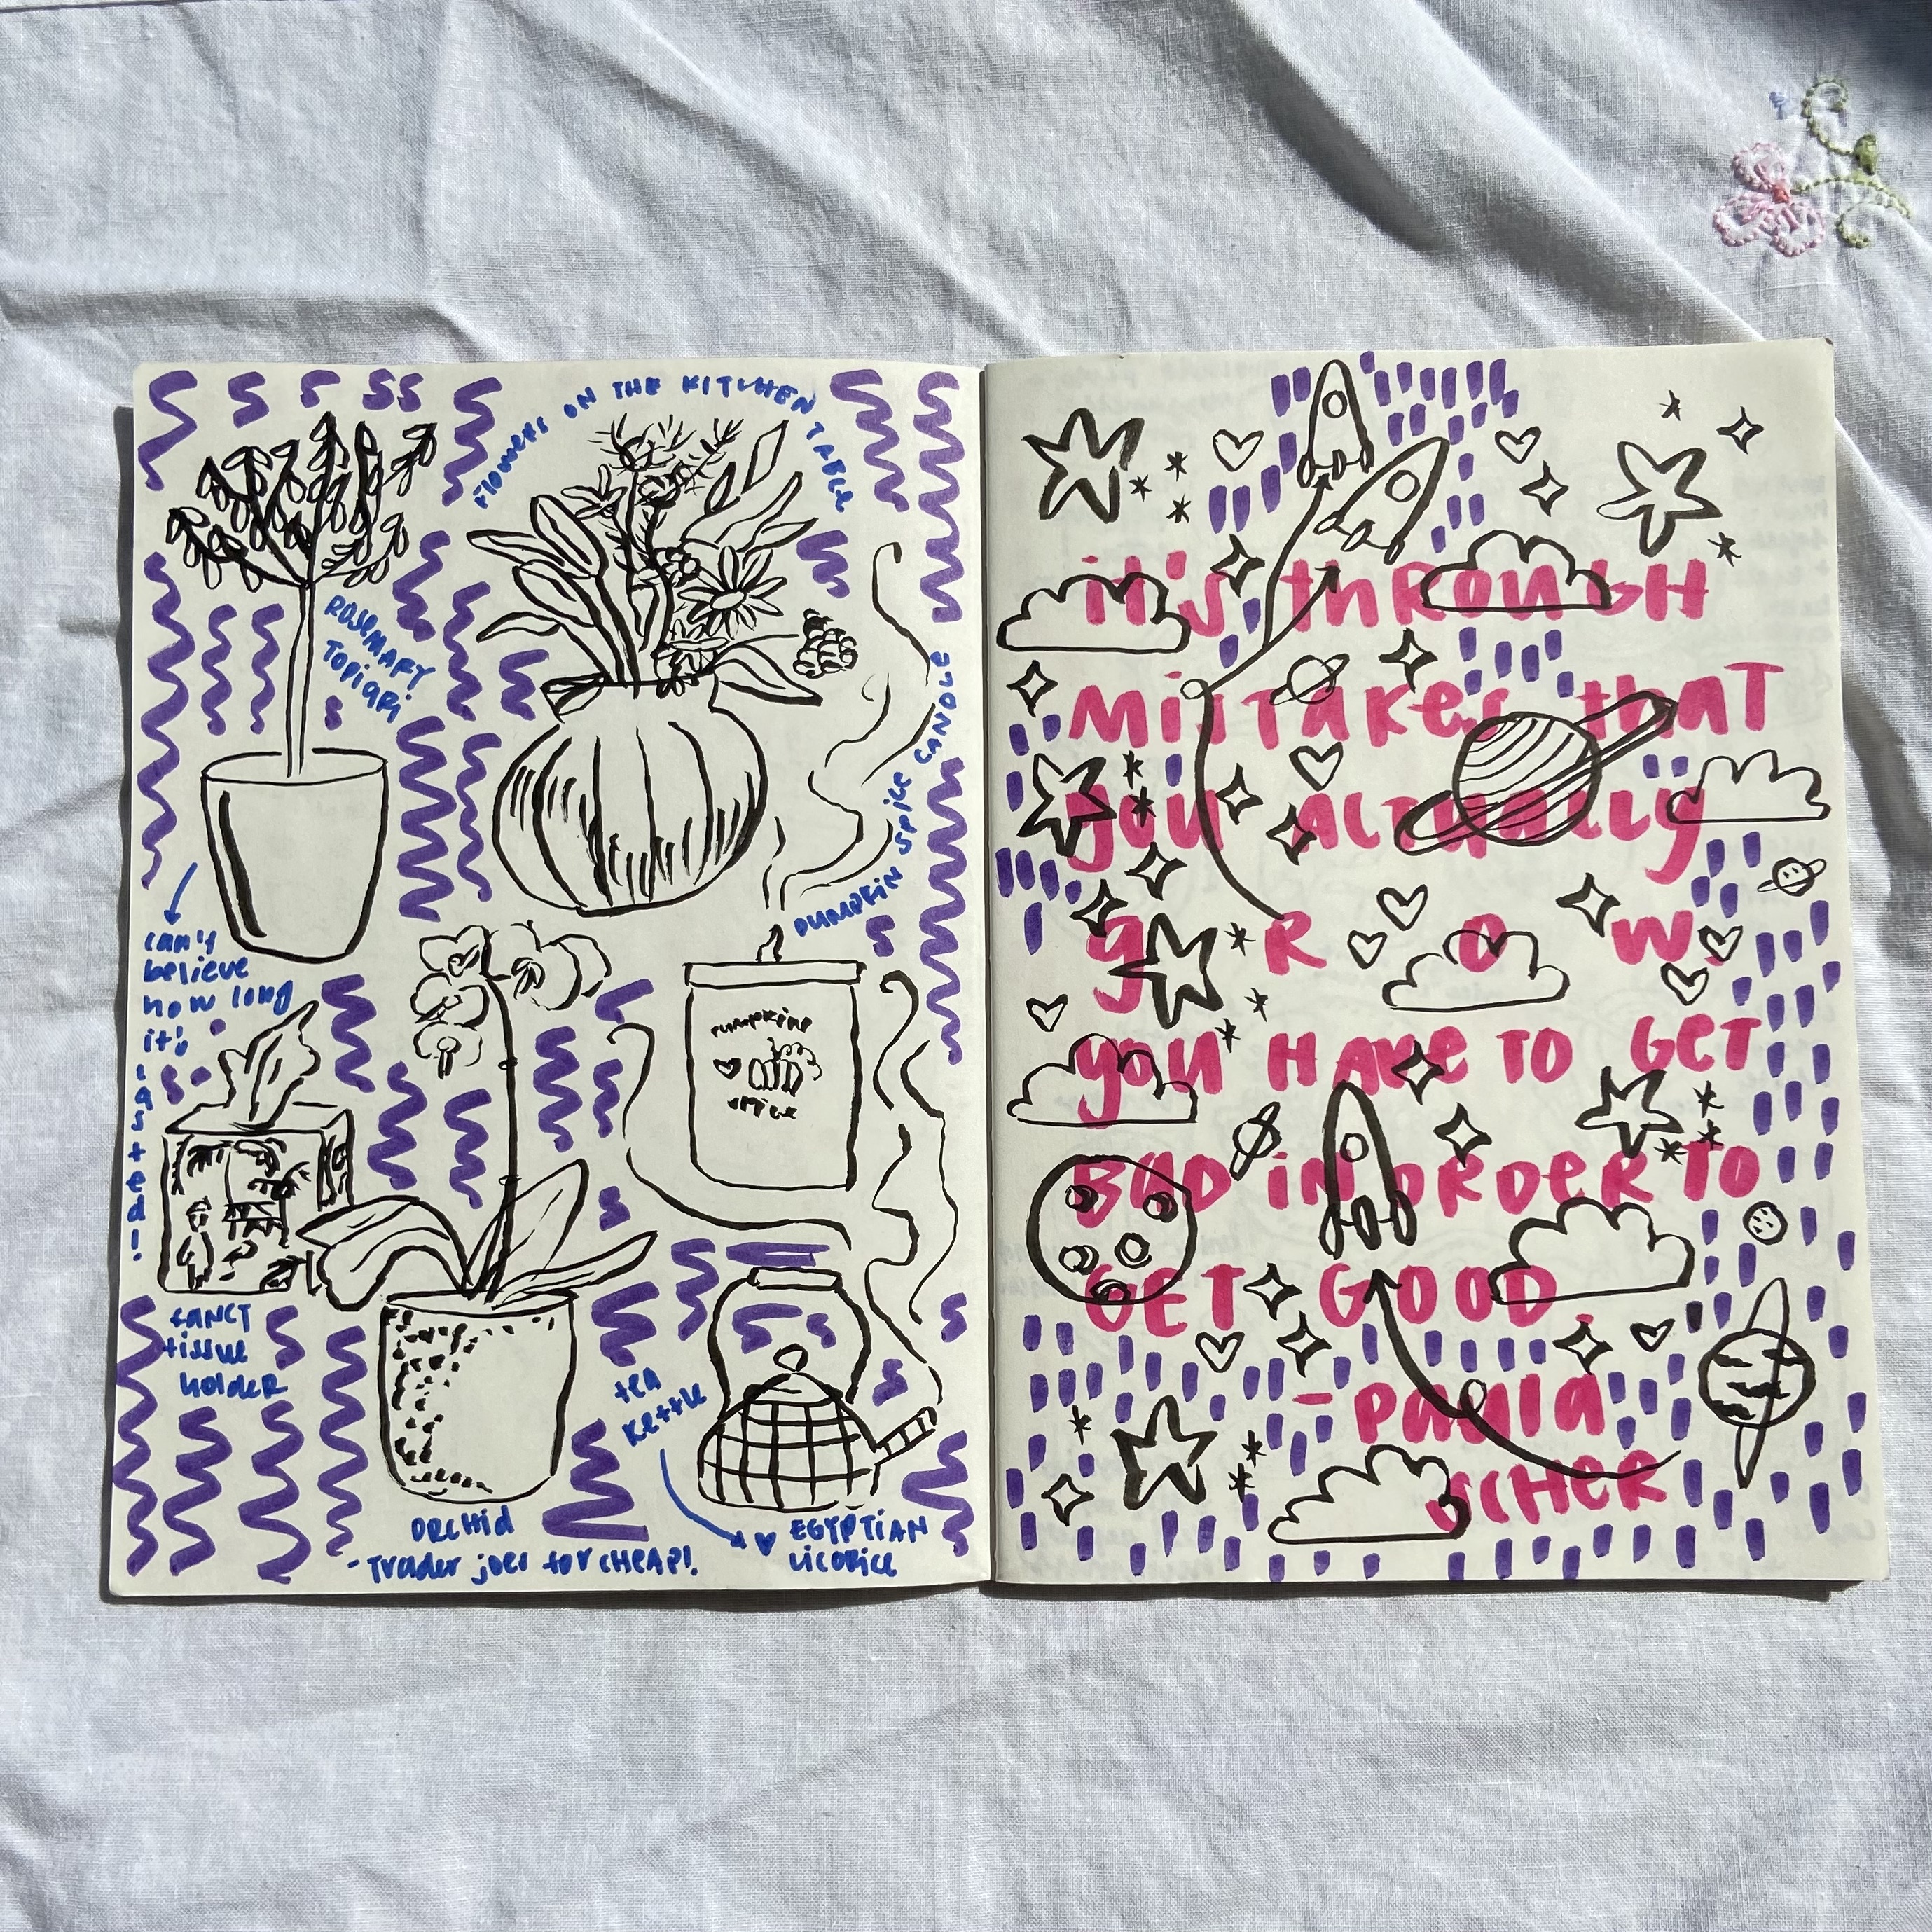 FlOWERS ON THE KITCHEN TABLE
ROSEMARY
TOPIARI
can't
believe
how long
it's
lasted!
PUMPKIN SPICE CANDLE
PUMPKIN
SPICE
FANCY
tissue
holder
tea
kettle
ORCHid
-Trader joes for CHEAP!
EGYPTIAN
licorice
it's thROUGH
MisTakes that
you actually
gROW
you HAVE TO GET
BAD in ORDER TO
GET GOOD.
- paula
scHER